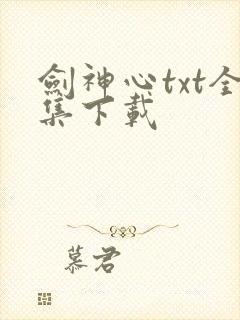 劍神心txt全
集下載
慕君